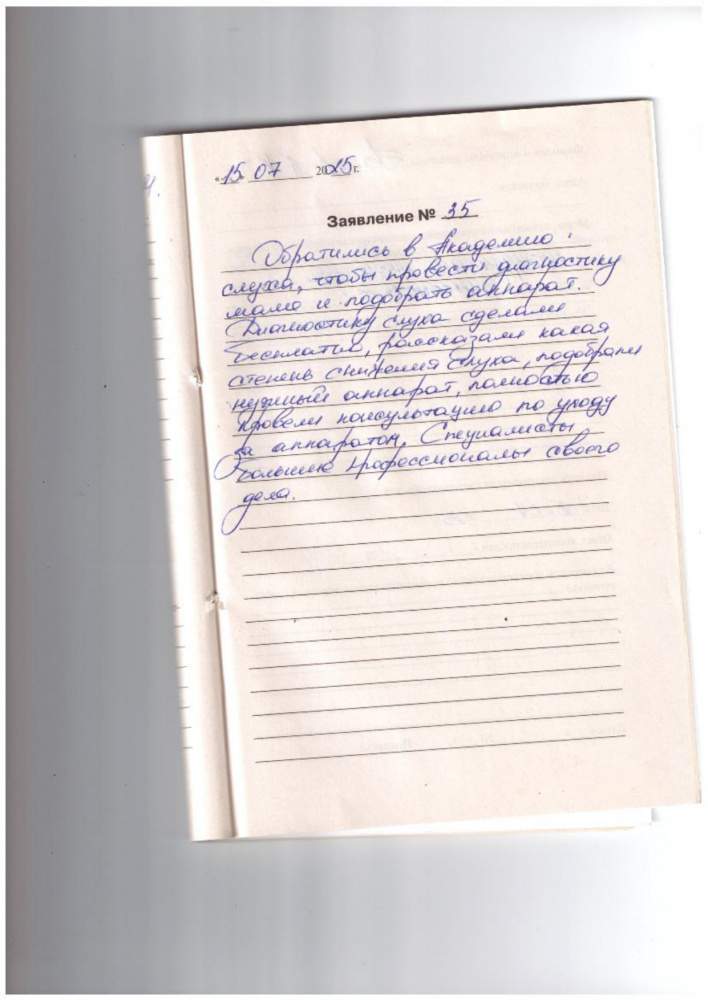 «15» 07 2015г.
Заявление № 35
Обратились в Академию
слуха, чтобы провести диагностику
маме и подобрать аппарат.
Диагностику слуха сделали
бесплатно, рассказали какая
степень снижения слуха, подобрали
нужный аппарат, полностью
провели консультацию по уходу
за аппаратом. Специалисты
большие профессионалы своего
дела.